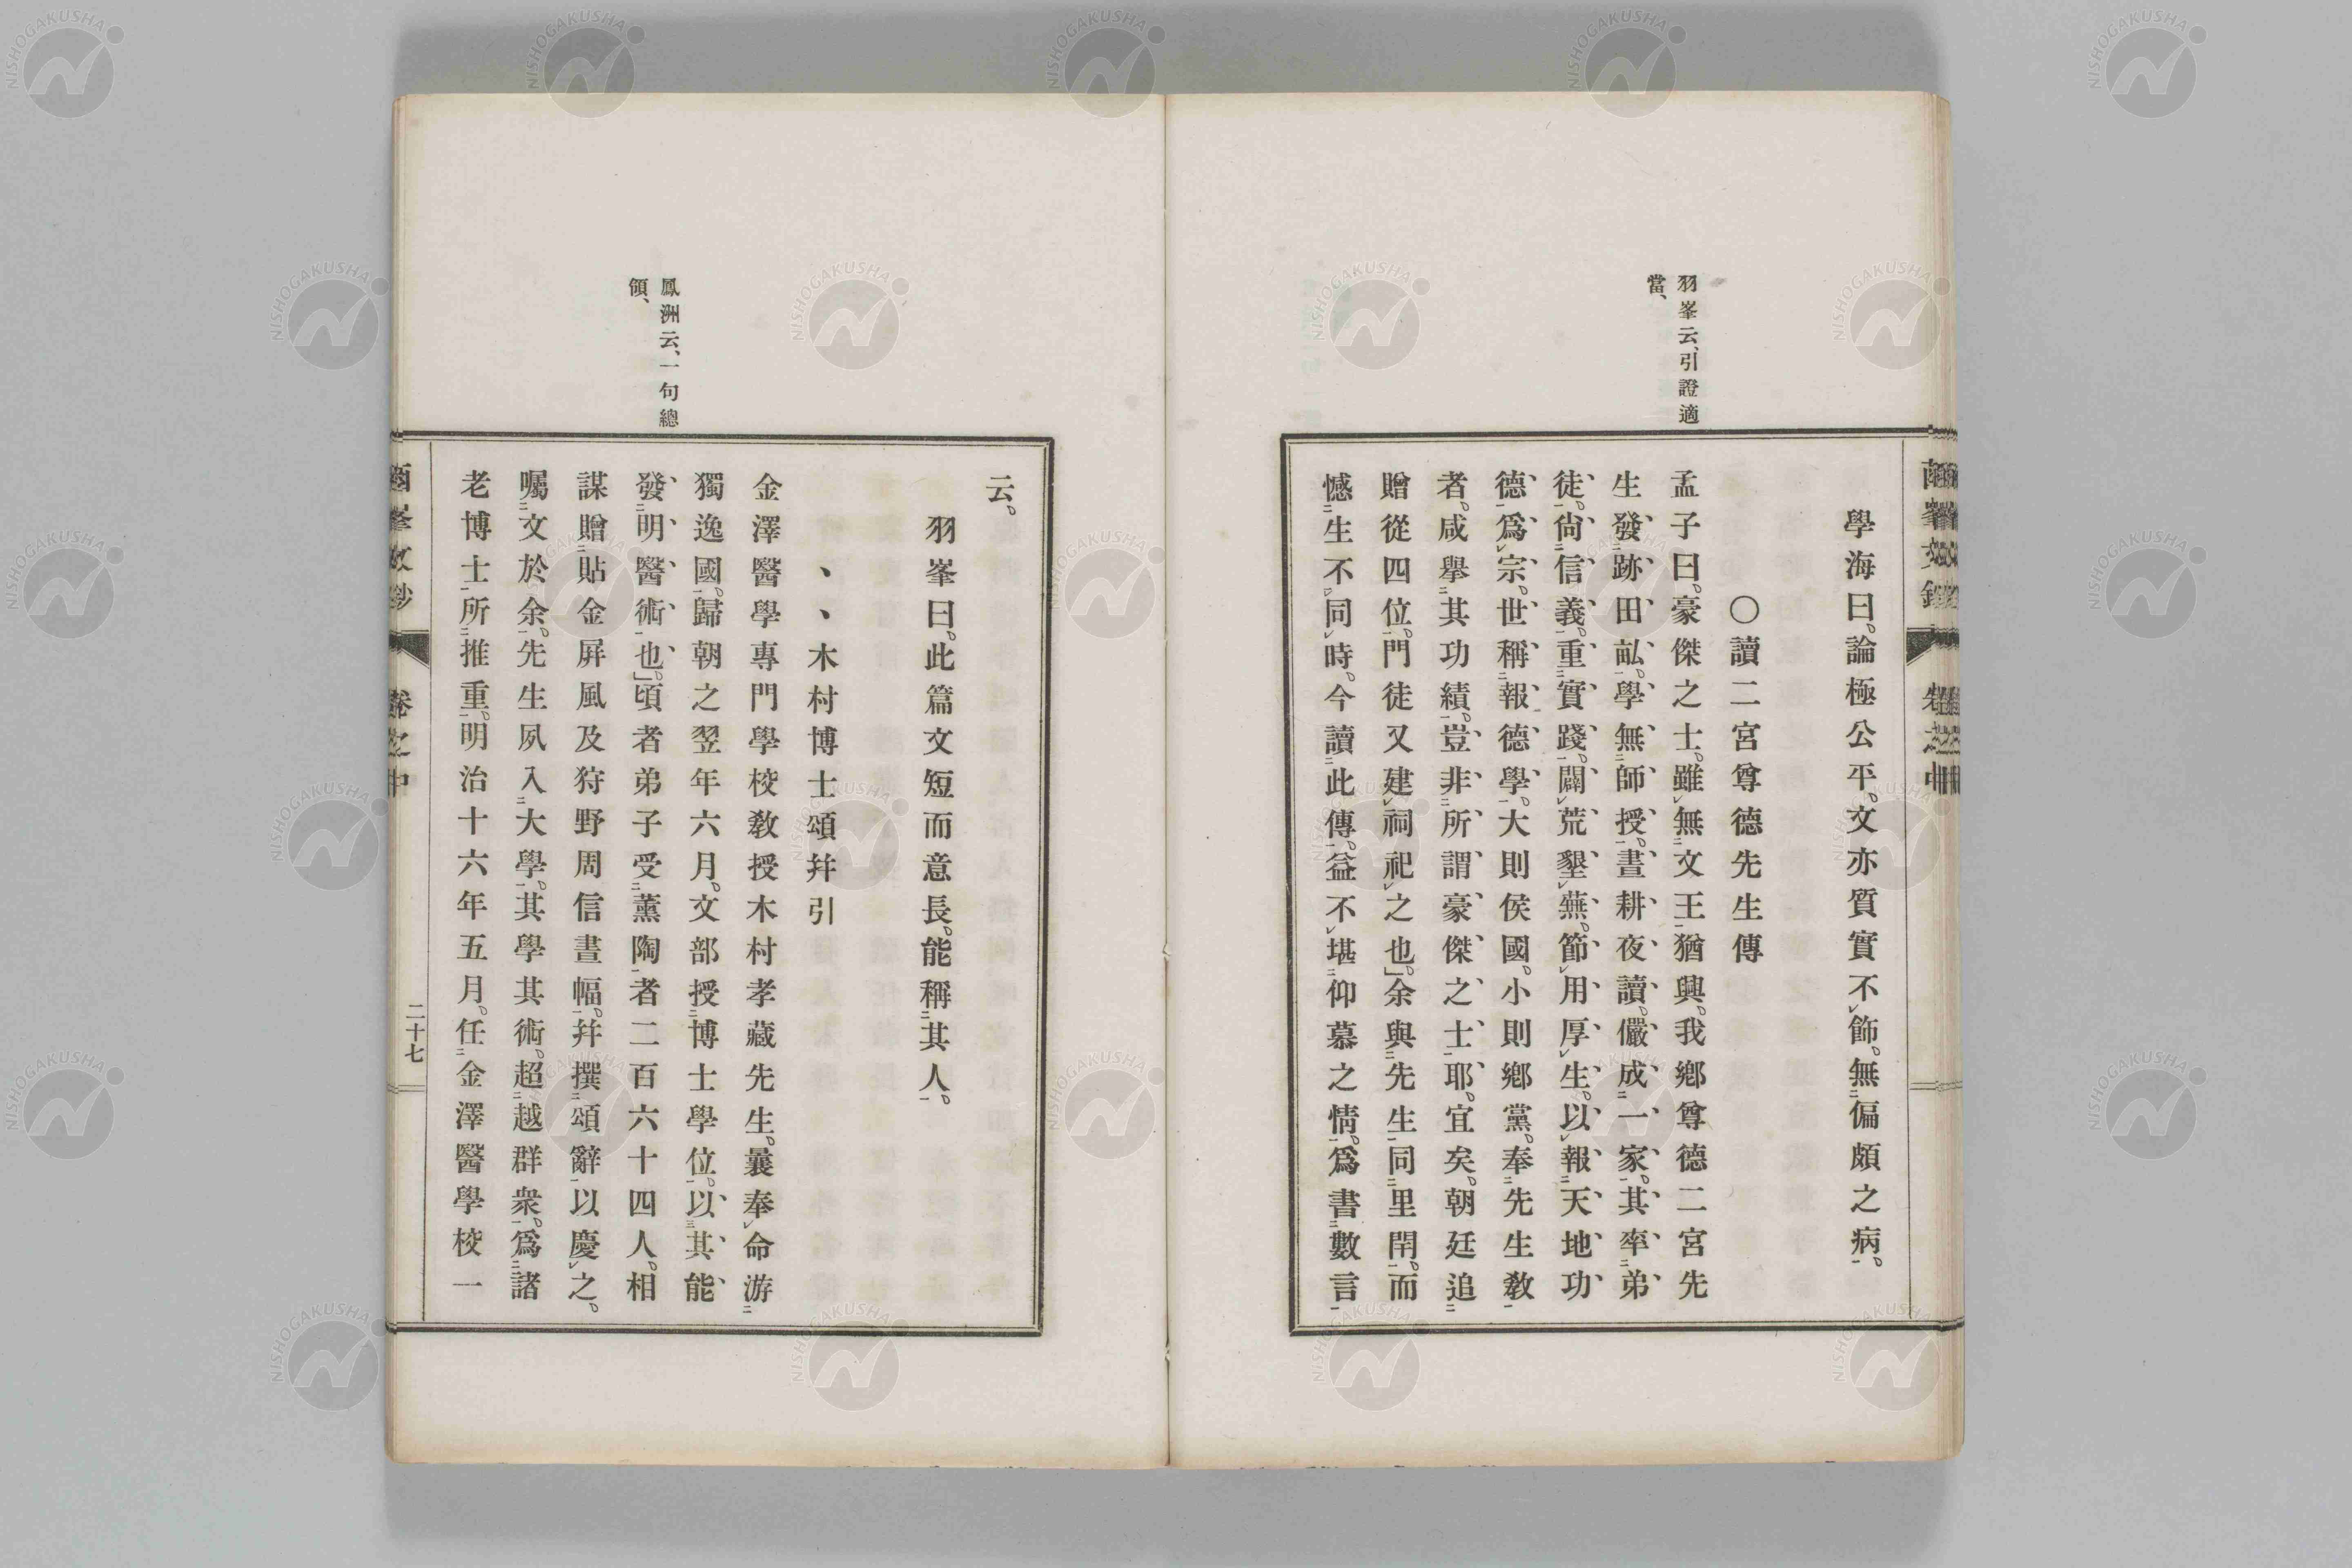 羽峯云、引證適
當、
學海曰。論極公平。文亦質實不飾。無偏頗之病。
〇讀二宮尊德先生傳
孟子曰。豪傑之士。雖無文王猶興。我鄉尊德二宮先
生發跡田畝。學無師授。晝耕夜讀。儼成一家。其率弟
徒。尙信義。重實踐。闢荒墾蕪。節用厚生。以報天地功
德爲宗。世稱報德學。大則侯國。小則鄉黨。奉先生敎
者。咸擧其功績。豈非所謂豪傑之士耶。宜矣。朝廷追
贈從四位。門徒又建祠祀之也」。余與先生同里閈。而
憾生不同時。今讀此傳。益不堪仰慕之情。爲書數言
鳳洲云、一句總
領、
云。
羽峯曰。此篇文短而意長。能稱其人。
、、木村博士頌幷引
金澤醫學專門學校敎授木村孝藏先生。曩奉命游
獨逸國。歸朝之翌年六月。文部授博士學位。以其能
發明醫術也」。頃者弟子受薰陶者二百六十四人。相
謀贈貼金屛風及狩野周信畫幅。幷撰頌辭以慶之。
囑文於余。先生夙入大學。其學其術。超越群衆。爲諸
老博士所推重。明治十六年五月。任金澤醫學校一
卷之中
二十七
NISHOGAKUSHA